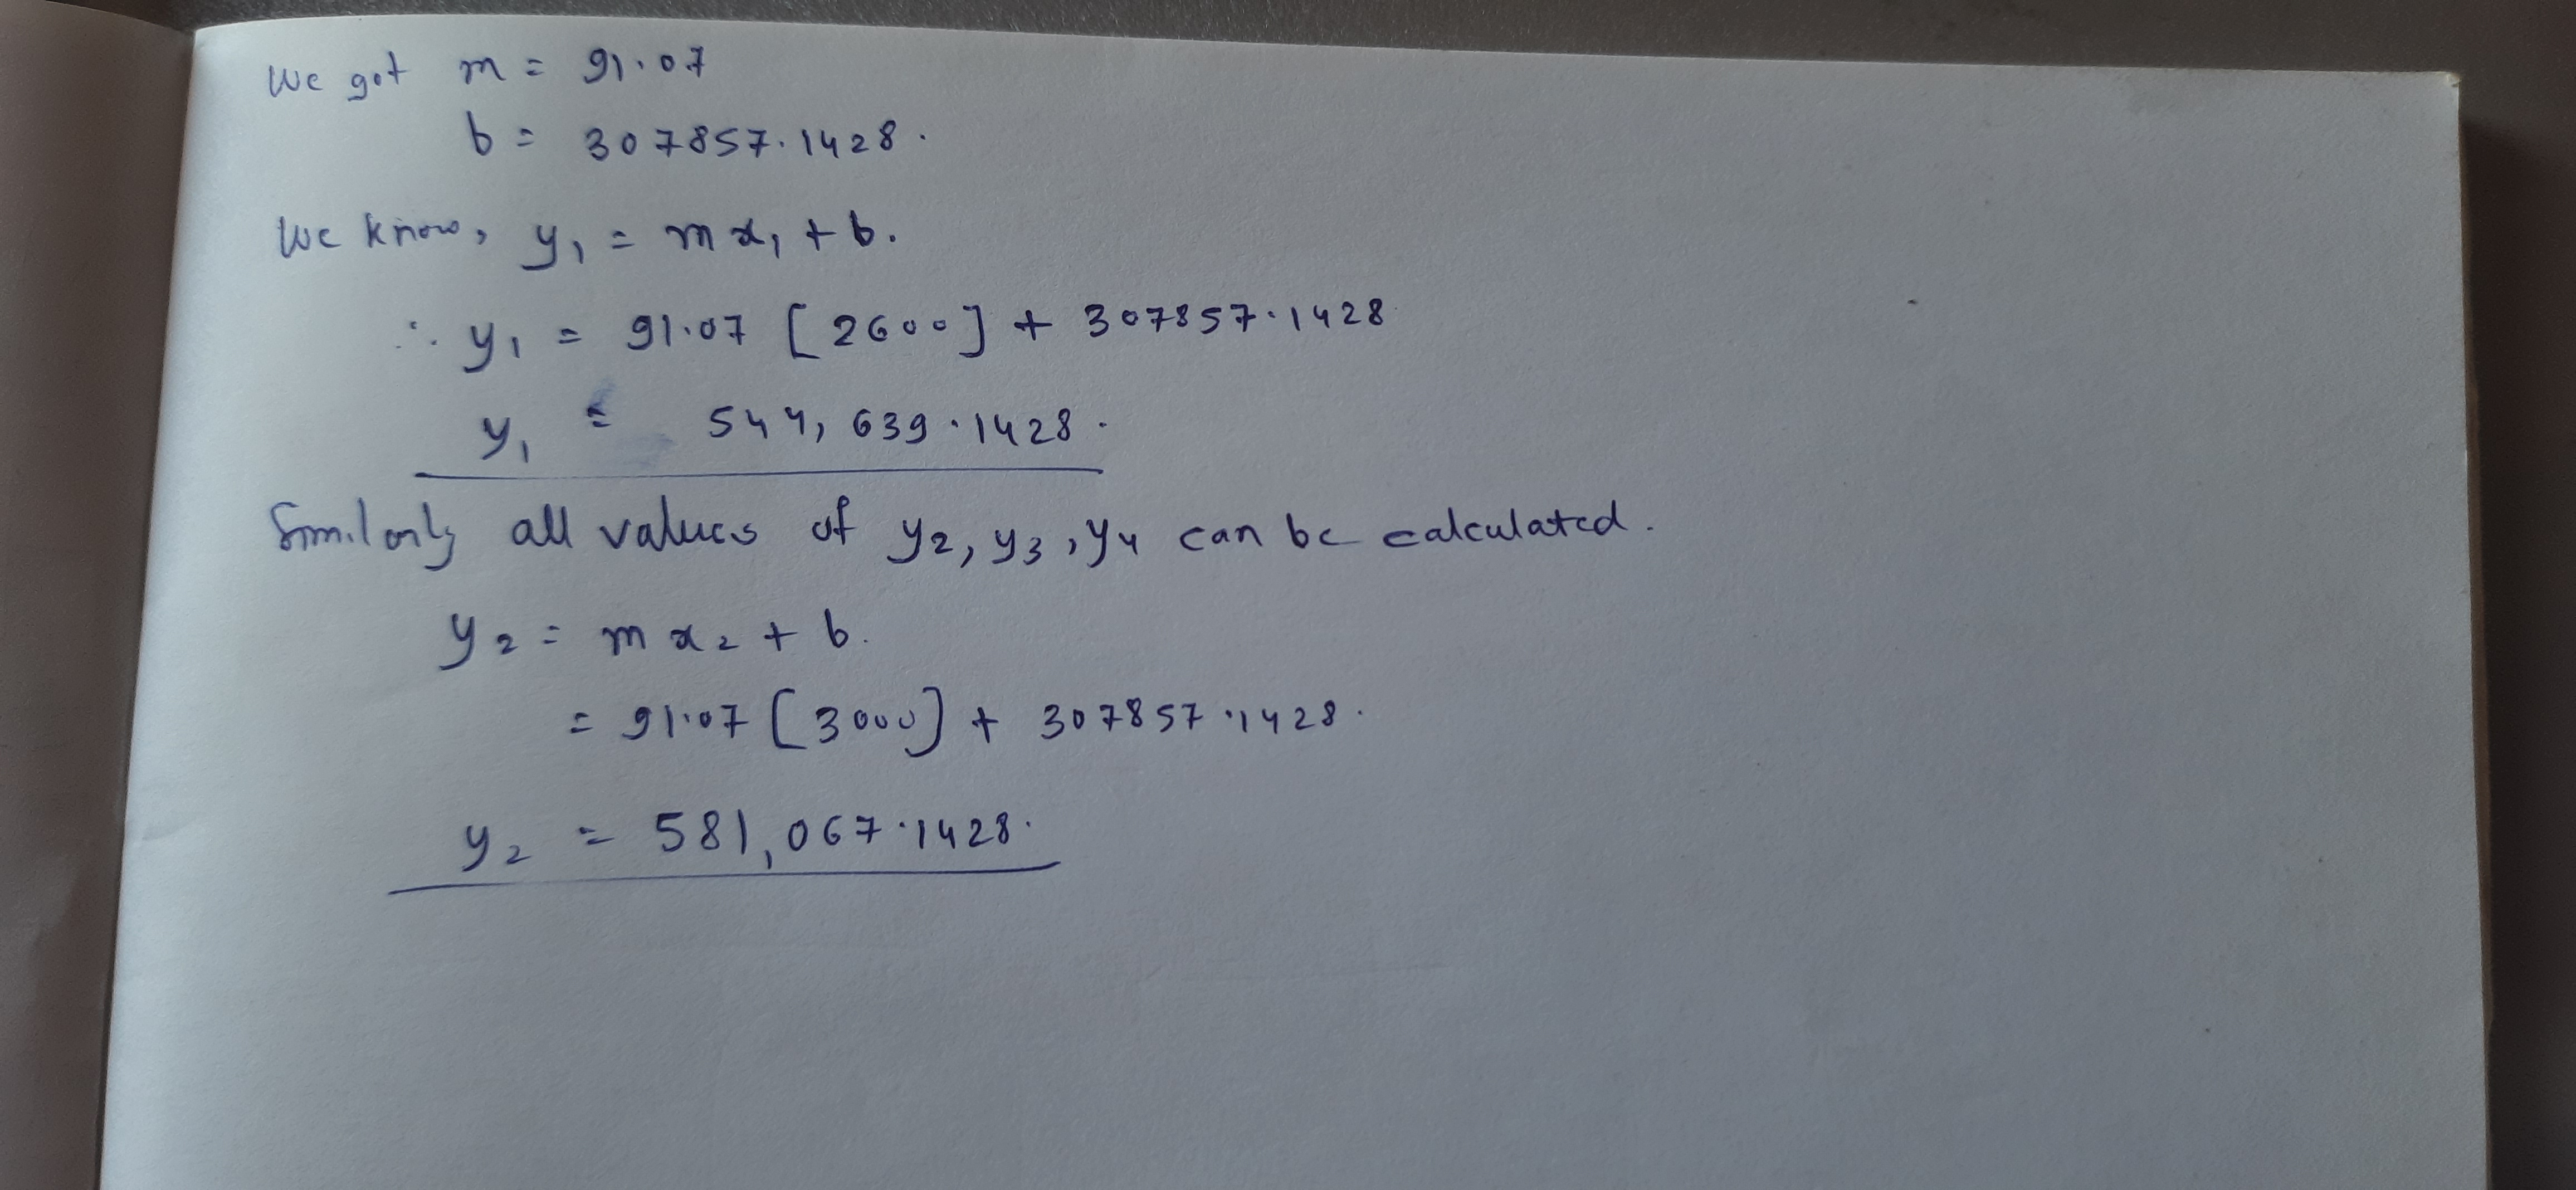 We got m = 91.07
b = 307857.1428.
We know, y₁ = mx₁ + b.
∴ y₁ = 91.07 [2600] + 307857.1428
y₁ = 544,639.1428.
Similarly all values of y₂, y₃, y₄ can be calculated.
y₂ = mx₂ + b.
= 91.07 [3000] + 307857.1428.
y₂ = 581,067.1428.